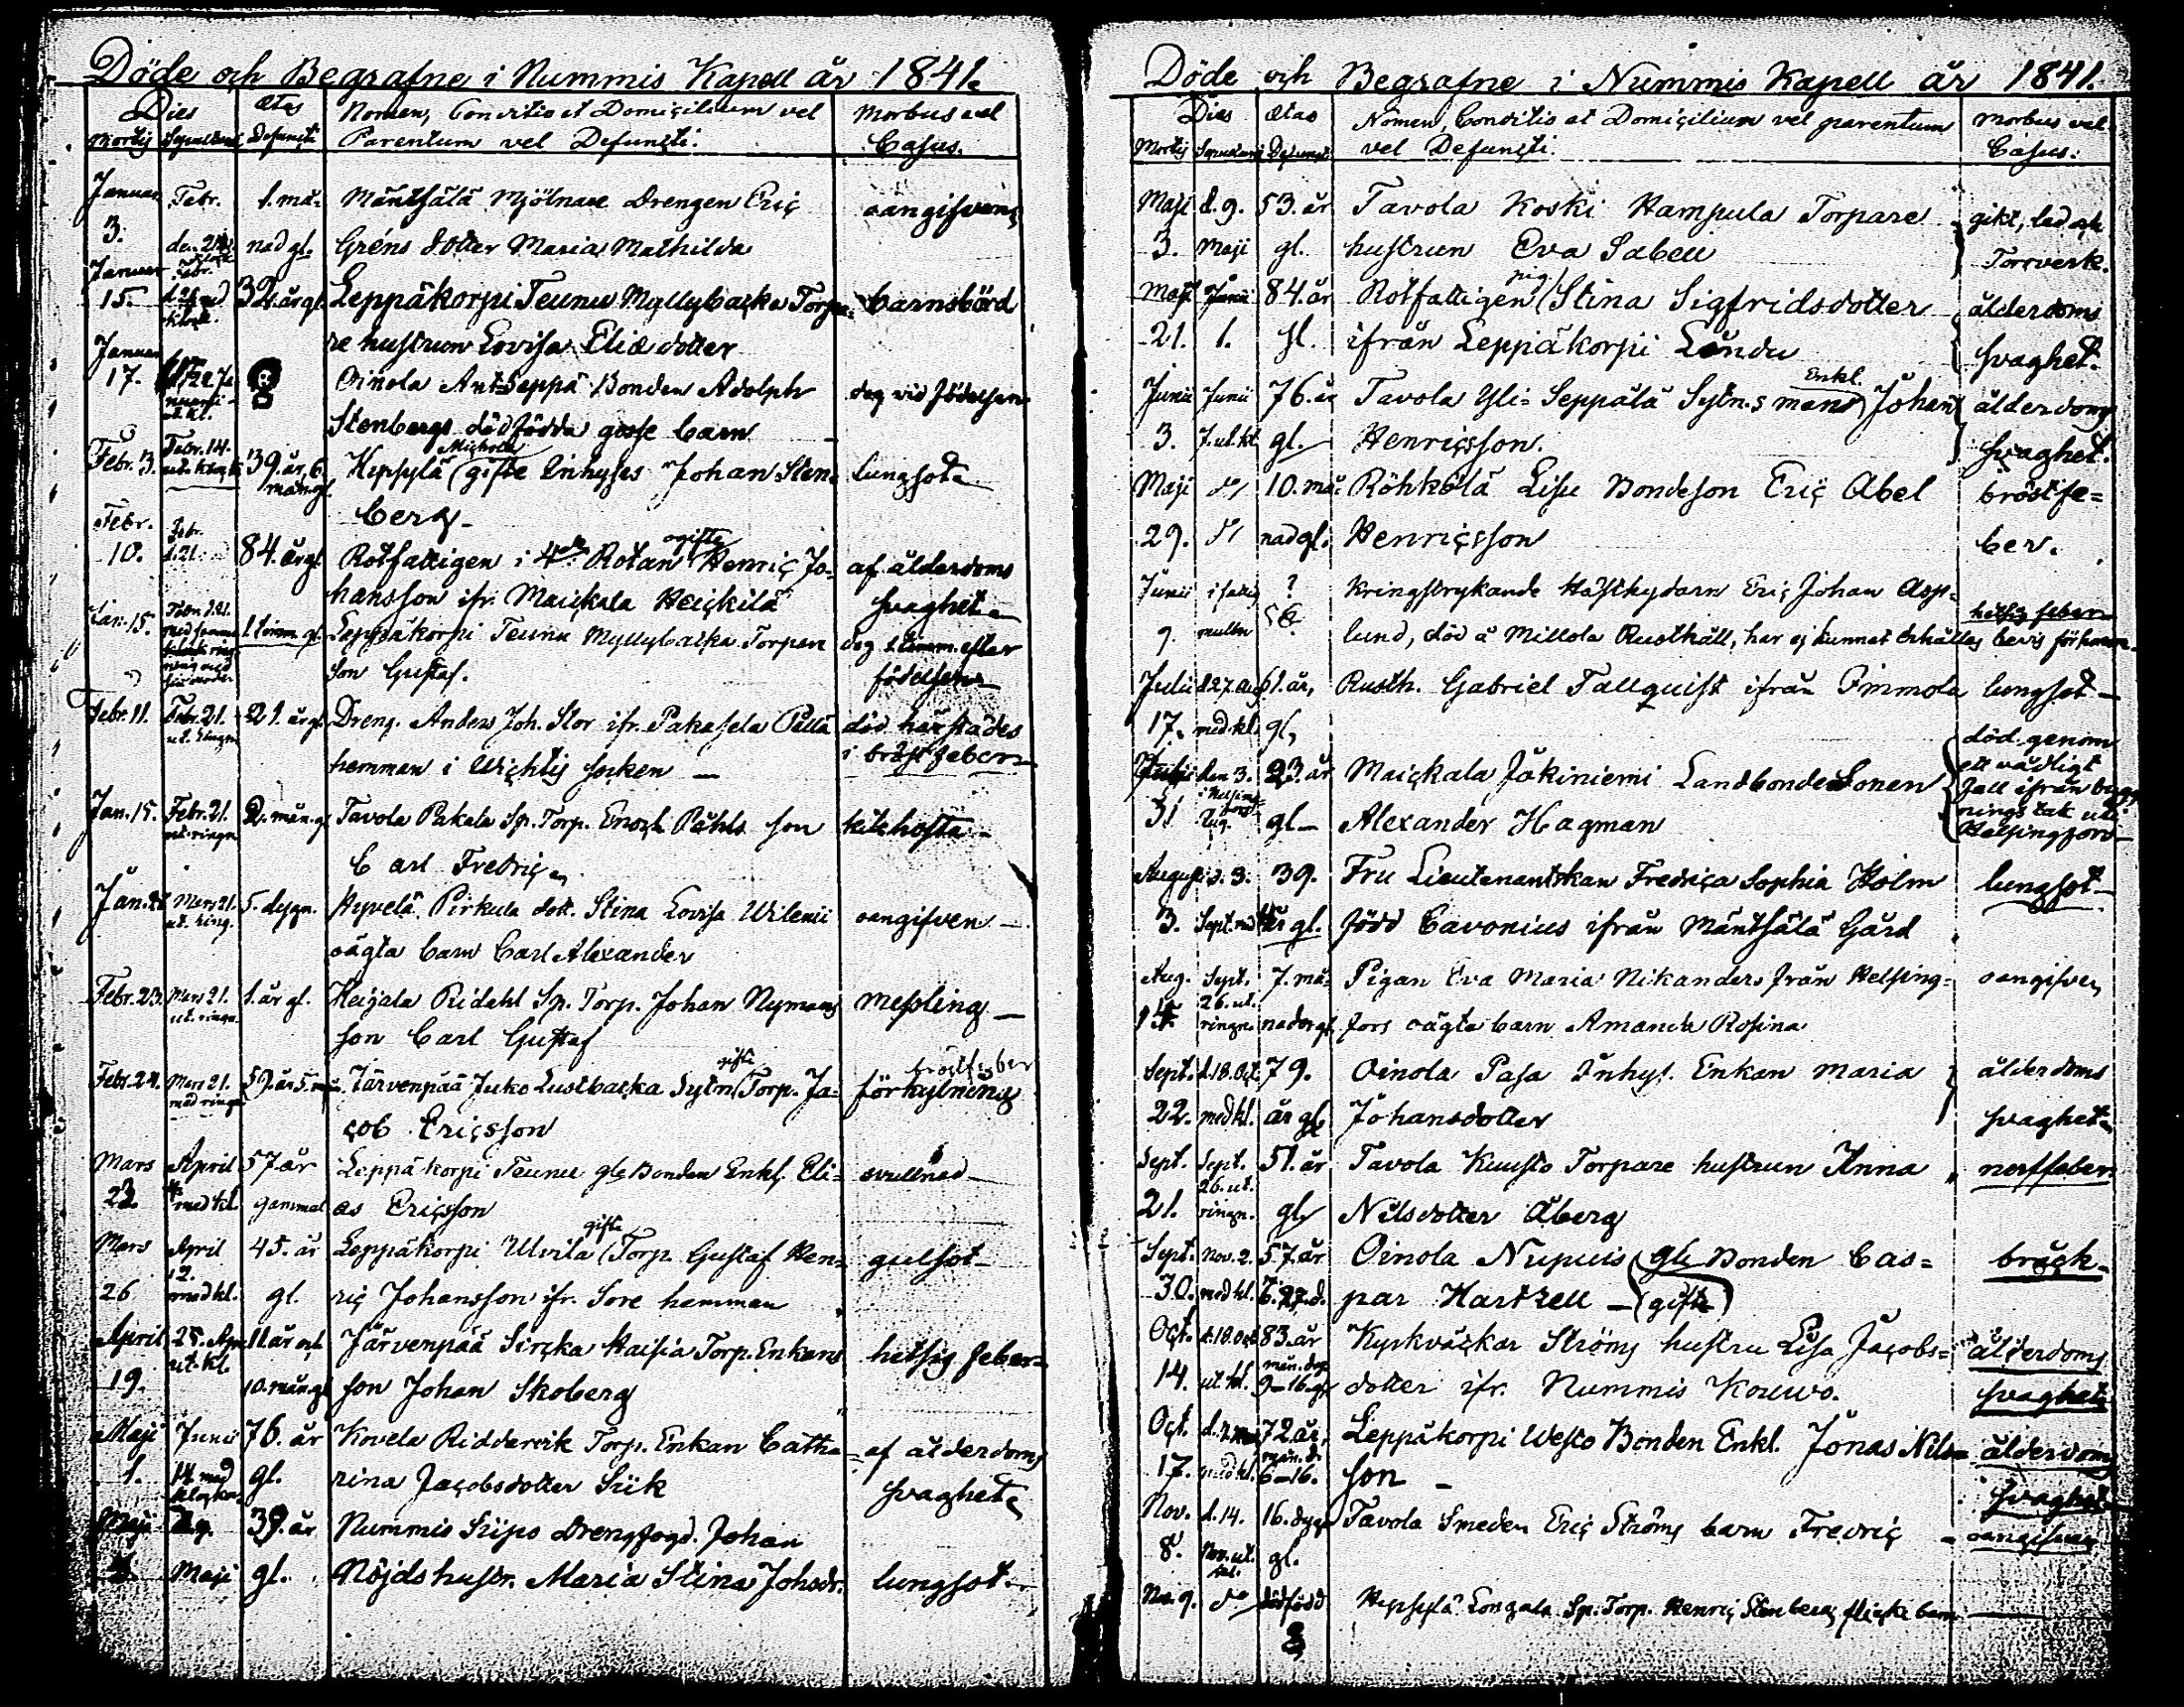 Döde och Begrafne i Nummis Kapell år 1841.
Dies
Mortis Sepulturæ
Ætas Defuncti
Nomen, Conditio et Domicilium vel
Parentum vel Defuncti.
Morbus vel
Casus.
Januar. Febr. 1. må- Mäntsälä Mjölnare Drengen Eric oangifven
3. den 21 nad gl. Gréns dotter Maria Mathilda
Januar Febr.
15. 32. år gl. Leppäkorpi Teunu Myllybacka Torpa- barnsbörd
re hustrun Lovisa Eliæ dotter
Januar
17. Oinola Ant-Seppä Bonden Adolph dog vid födelsen
Stenbergs dödfödda gosse barn
Febr. 3. Febr. 14. 39. år, 6. Hypsylä gifte Inhyses Johan Sten- lungsot
mån. gl. berg
Febr. Febr.
10. d. 21. 84. år gl. Rotfattigen i 4de Rotan ogifte Henric Jo- af ålderdoms
hansson ifr. Maickala Heickilä svaghet
Jan. 15. 1. timm. gl. Leppäkorpi Teunu Myllybacka Torpare dog 1. timm. efter
son Gustaf. födelsen
Febr. 11. Febr. 21. 21. år gl. Dreng. Anders Joh. Stor ifr. Pakasela Pellä död härstädes
hemman i Wichtis socken i bröstfebern
Jan. 15. Febr. 21. 2. mån. gl. Tavola Pakala Sp. Torp. Enoch Påhls son kikhosta
ut. ringn. Carl Fredric
Jan. 28 Mars 21. 5. dygn. Hyvelä Pirkula dott. Stina Lovisa Wilenii oangifven
ut. ring. oägta barn Carl Alexander
Febr. 23. Mars 21. 1. år gl. Heijala Ridahl Sp. Torp. Johan Nymans messling
ut. ringn. son Carl Gustaf
Febr. 24. Mars 21. 59. år 5. mån. Järvenpää Juko Lustbacka Sytn. gifte Torp. Ja- bröstfeber förkylning
med ringn. cob Ericsson
Mars April 57. år Leppäkorpi Teunu gle Bonden Enkl. Eli- svullnad
22. med kl. gammal as Ericsson
Mars April 45. år Leppäkorpi Ulvila gifte Torp. Gustaf Hen- gulsot
12.
26 med kl. gl. ric Johansson ifr. Sore hemman
April 25. Apr. 11. år och Järvenpää Sircka Haisia Torp. Enkans hetsig feber
ut. kl.
19. 10. mån. gl. son Johan Skoberg
Maji Junii 76. år Kovela Riddarvik Torp. Enkan Catha- af ålderdoms
1. 14. med klocka gl. rina Jacobsdotter Siik svaghet
Maji d. 9. 39. år Nummis Siipo Drengfogd. Johan
Maji gl. Nöjds hustr. Maria Stina Johsdr. lungsot
Döde och Begrafne i Nummis Kapell år 1841.
Dies
Mortis Sepulturæ
Ætas Defuncti
Nomen, Conditio et Domicilium vel parentum
vel Defuncti.
Morbus vel
Casus.
Maji d. 9. 53. år Tavola Koski Hampula Torpare gikt, led och
3. Maji gl. hustrun Eva Sabell Torrverk.
Maji Junii 84. år Rotfattigen pig. Stina Sigfridsdotter ålderdoms
21. 1. gl. ifrån Leppäkorpi Landu svaghet.
Junii Junii 76. år Tavola Yli-Seppälä Sytn.s mans Enkl. Johan ålderdoms
3. 7. ut. kl. gl. Henricsson. svaghet.
Maji d:o 10. må- Röhkölä Lisu Bondeson Eric Abel bröstfe-
29. d:o nad gl. Henricsson ber.
Junii ? Kringstrykande Hästkydarn Eric Johan Asp- hetsig feber
9. lund, död å Millola Rusthåll, har ej kunnat erhållas bevis för honom.
Julii d. 27. Aug 61. år, Rusth. Gabriel Tallquist ifrån Pimmola lungsot
17. med kl. gl.
Julii den 3. 23. år Maickala Jäkiniemi Landbonde Sonen död genom
ett vådligt
fall ifrån bygg-
nings tak uti
Helsingfors
31 Aug. gl. Alexander Hagman
August d. 3. 39. Fru Lieutenantskan Fredrica Sophia Holm lungsot
3. Sept. med kl. år gl. född Cavonius ifrån Mäntsälä Gård
Aug. Sept. 7. må- Pigan Eva Maria Nikanders från Helsing- oangifven
26. ut.
14. ringn. nader gl. fors oägta barn Amanda Rosina
Sept. d. 18. Oct. 79. Oinola Pasa Inhys. Enkan Maria ålderdoms
22. med kl. år gl. Johansdotter svaghet
Sept. Sept. 51. år Tavola Kuusto Torpare hustrun Anna nerffeber
26. ut.
21. ringn. gl. Nilsdotter Åberg
Sept. Nov. 2. 57. år Oinola Nupuis gle Bonden Cas- bråck
30. med kl. par Hartzell (gifte)
Oct. d. 18. Oct 83. år Kyrkväckar Ströms hustru Lisa Jacobs- ålderdoms
14. ut. kl. 9-16. gl. dotter ifr. Nummis Kouvo. svaghet
Oct. 72 år, Leppäkorpi Westo Bonden Enkl. Jonas Nils- ålderdoms
17. med kl. 6-16. son svaghet
Nov. d. 14. 16. dygn Tavola Smeden Eric Ströms barn Fredric oangifven
8. Nov. ut. kl. gl.
Nov. 9. d:o dödfödd Hypsylä Longala Sp. Torp. Henric Stenbergs flicke barn